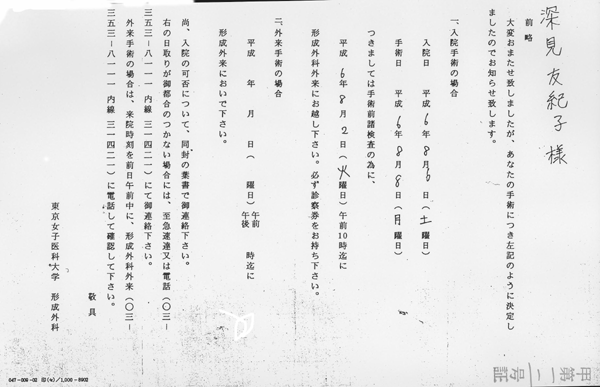 深見友紀子様
前略
大変おまたせ致しましたが、あなたの手術につき左記のように決定し
ましたのでお知らせ致します。
一、入院手術の場合
入院日 平成6年8月6日(土曜日)
手術日 平成6年8月8日(月曜日)
つきましては手術前諸検査の為に、
平成6年8月2日(火曜日)午前10時迄に
形成外科外来にお越し下さい。必ず診察券をお持ち下さい。
二、外来手術の場合
平成 年 月 日( 曜日)午前 午後 時迄に
形成外来においで下さい。
尚、入院の可否について、同封の葉書で御連絡下さい。
右の日取りが御都合のつかない場合には、至急速達又は電話(〇三―
三五三―八一一一 内線 三一四二一)にて御連絡下さい。
外来手術の場合は、来院時刻を前日午前中に、形成外科外来(〇三―
三五三―八一一一 内線 三一四二一)に電話して確認して下さい。
敬具
東京女子医科大学 形成外科
047-009-02 印(セ)/1,000-8902
甲第一二号証